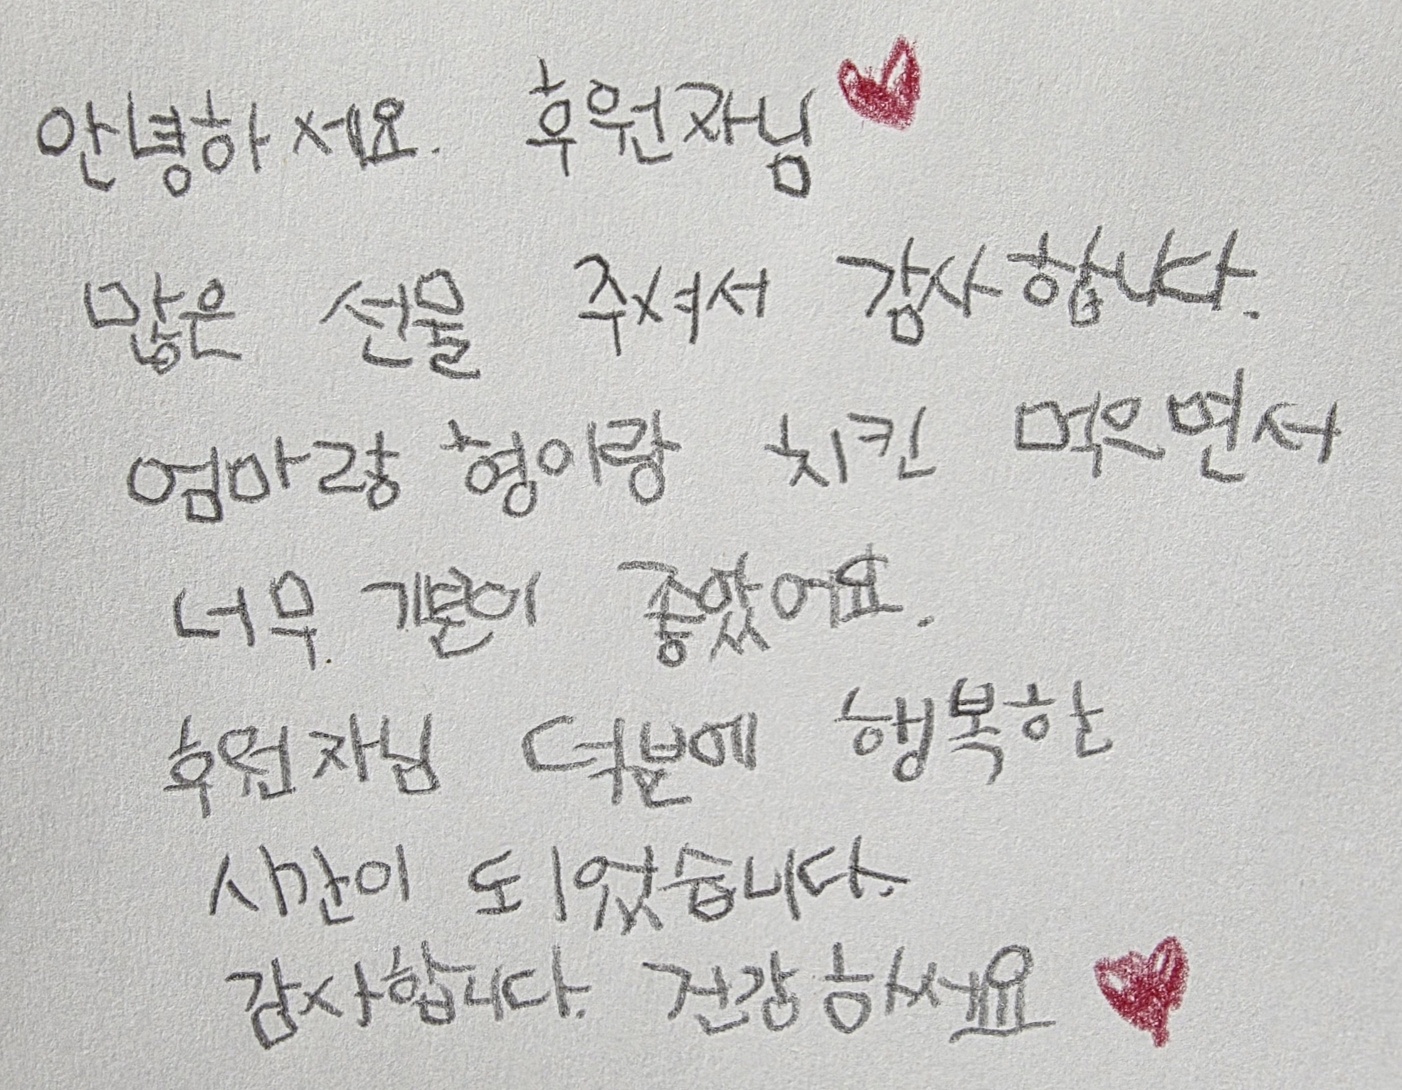 안녕하세요. 후원자님
많은 선물 주셔서 감사합니다.
엄마랑 형이랑 치킨 먹으면서
너무 기분이 좋았어요.
후원자님 덕분에 행복한
시간이 되었습니다.
감사합니다. 건강하세요